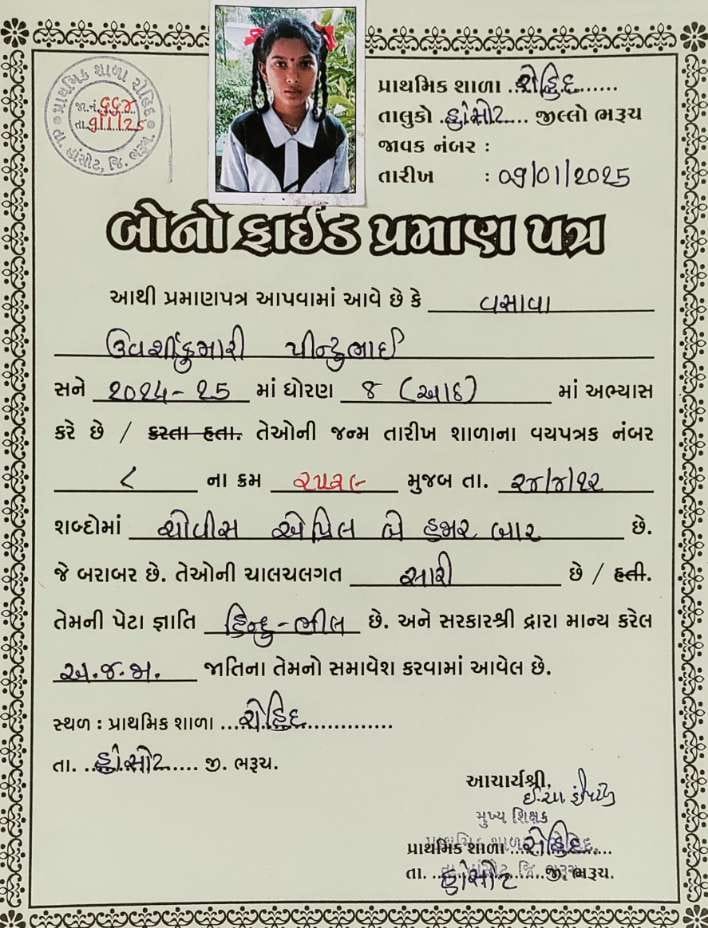 પ્રાથમિક શાળા રોહિદ
જા.નં. ૬૬૪
તા. ૭/૧/૨૫
તા. હાંસોટ, જિ. ભરૂચ
પ્રાથમિક શાળા ..રોહિદ......
તાલુકો ..હાંસોટ.... જીલ્લો ભરૂચ
જાવક નંબર :
તારીખ : 09/01/2025
બોનોફાઈડ પ્રમાણ પત્ર
આથી પ્રમાણપત્ર આપવામાં આવે છે કે વસાવા
ઉવર્શીકુમારી પીન્ટુભાઈ
સને 2024-25 માં ધોરણ 8 (આઠ) માં અભ્યાસ
કરે છે / કરતા હતા. તેઓની જન્મ તારીખ શાળાના વયપત્રક નંબર
૮ ના ક્રમ ૨૫૨૯ મુજબ તા. ૨૪/૪/૧૨
શબ્દોમાં ચોવીસ એપ્રિલ બે હજાર બાર છે.
જે બરાબર છે. તેઓની ચાલચલગત સારી છે / હતી.
તેમની પેટા જ્ઞાતિ હિન્દુ-ભીલ છે. અને સરકારશ્રી દ્વારા માન્ય કરેલ
અ.જ.જા. જાતિના તેમનો સમાવેશ કરવામાં આવેલ છે.
સ્થળ : પ્રાથમિક શાળા ...રોહિદ..............
તા. ..હાંસોટ..... જી. ભરૂચ.
આચાર્યશ્રી,
મુખ્ય શિક્ષક
પ્રાથમિક શાળા ..રોહિદ...
તા. ..હાંસોટ.....જી. ભરૂચ.